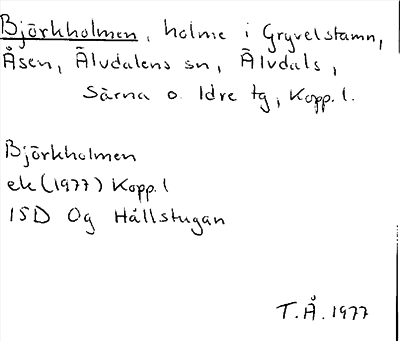 Björkholmen, holme i Gryvelstamn,
Åsen, Älvdalens sn, Älvdals,
Särna o. Idre tg, Kopp. l.
Björkholmen
ek (1977) Kopp. l
15D 0g Hållstugan
T.Å. 1977